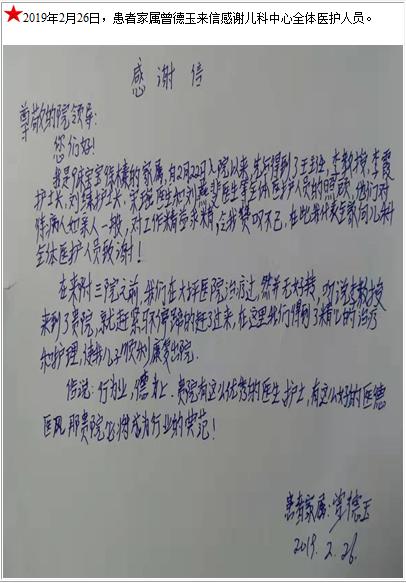 2019年2月26日，患者家属曾德玉来信感谢儿科中心全体医护人员。
感谢信
尊敬的院领导：
您们好！
我是9床宝宝的家属，自2月22日入院以来，先后得到了王主任，李教授，李霞
护士长，护士长，医生和刘燕斐医生等全体医护人员的照顾，他们对
待病人如亲人一般，对工作精益求精，令我赞叹不已，在此我代表全家向儿科
全体医护人员致谢！
在来附三院之前，我们在大坪医院治疗过，然并无好转，听说李教授
来到了贵院，就赶紧马不停蹄的赶了过来，在这里我们得到了精心的治疗
和护理，使我儿顺利康复出院．
俗说：行为业，德为上．贵院有这么优秀的医生护士，有这么好的医德
医风，那贵院必将成为行业的典范！
患者家属：曾德玉
2019．2．26．